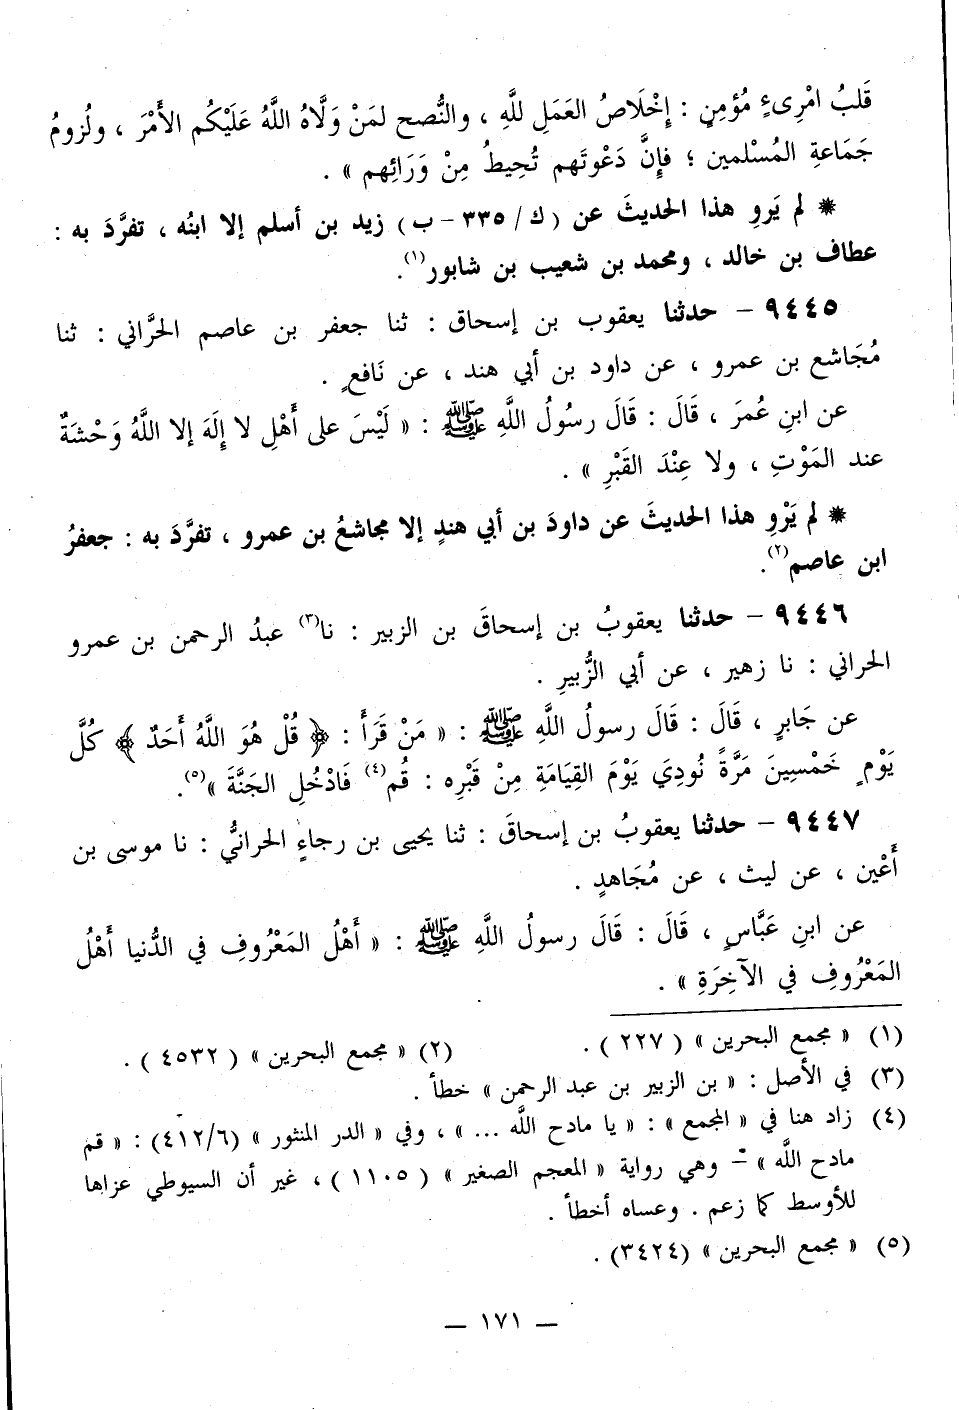 قَلبُ امْرِىءٍ مُؤمِنٍ : إِخْلَاصُ العَمَلِ للَّهِ ، والنُّصح لمَنْ وَلَّاهُ اللَّهُ عَلَيْكُم الأَمْرَ ، ولُزومُ
جَمَاعةِ المُسْلمين ؛ فإِنَّ دَعْوتَهم تُحِيطُ مِنْ وَرَائِهم » .
* لم يَروِ هذا الحديثَ عن ( ك / ٣٣٥ - ب ) زيد بن أسلم إلا ابنُه ، تفرَّدَ به :
عطاف بن خالد ، ومحمد بن شعيب بن شابور(١).
٩٤٤٥ - حدثنا يعقوب بن إسحاق : ثنا جعفر بن عاصم الحرَّاني : ثنا
مُجَاشع بن عمرو ، عن داود بن أبي هند ، عن نَافعٍ .
عن ابنِ عُمرَ ، قَالَ : قَالَ رسُولُ اللَّهِ ﷺ : « لَيْسَ على أَهْلِ لا إِلَهَ إلا اللَّهُ وَحْشَةٌ
عند المَوْتِ ، ولا عِنْدَ القَبْرِ » .
* لم يَرْوِ هذا الحديثَ عن داودَ بن أبي هندٍ إلا مجاشعُ بن عمرو ، تفرَّدَ به : جعفرُ
ابن عاصم(٢).
٩٤٤٦ - حدثنا يعقوبُ بن إسحاقَ بن الزبير : نا(٣) عبدُ الرحمن بن عمرو
الحراني : نا زهير ، عن أبي الزُّبيرِ .
عن جَابرٍ ، قَالَ : قَالَ رسولُ اللَّهِ ﷺ : « مَنْ قَرَأَ : ﴿ قُلْ هُوَ اللَّهُ أَحَدٌ ﴾ كُلَّ
يَوْمٍ خَمْسِينَ مَرَّةً نُودِيَ يَوْمَ القِيَامَةِ مِنْ قَبْرِه : قُم(٤) فَادْخُلِ الجَنَّةَ »(٥).
٩٤٤٧ - حدثنا يعقوبُ بن إسحاقَ : ثنا يحيى بن رجاءٍ الحرانيُّ : نا موسى بن
أَعْين ، عن ليث ، عن مُجَاهدٍ .
عن ابنِ عَبَّاسٍ ، قَالَ : قَالَ رسولُ اللَّهِ ﷺ : « أَهْلُ المَعْرُوفِ في الدُّنيا أَهْلُ
المَعْرُوفِ في الآخِرَةِ » .
(١) « مجمع البحرين » ( ٢٢٧ ) . (٢) « مجمع البحرين » ( ٤٥٣٢ ) .
(٣) في الأصل : « بن الزبير بن عبد الرحمن » خطأ .
(٤) زاد هنا في « المجمع » : « يا مادح اللَّه ... » ، وفي « الدر المنثور » (٤١٢/٦) : « قم
مادح اللَّه » - وهي رواية « المعجم الصغير » ( ١١٠٥ ) ، غير أن السيوطي عزاها
للأوسط كما زعم . وعساه أخطأ .
(٥) « مجمع البحرين » (٣٤٢٤) .
— ١٧١ —